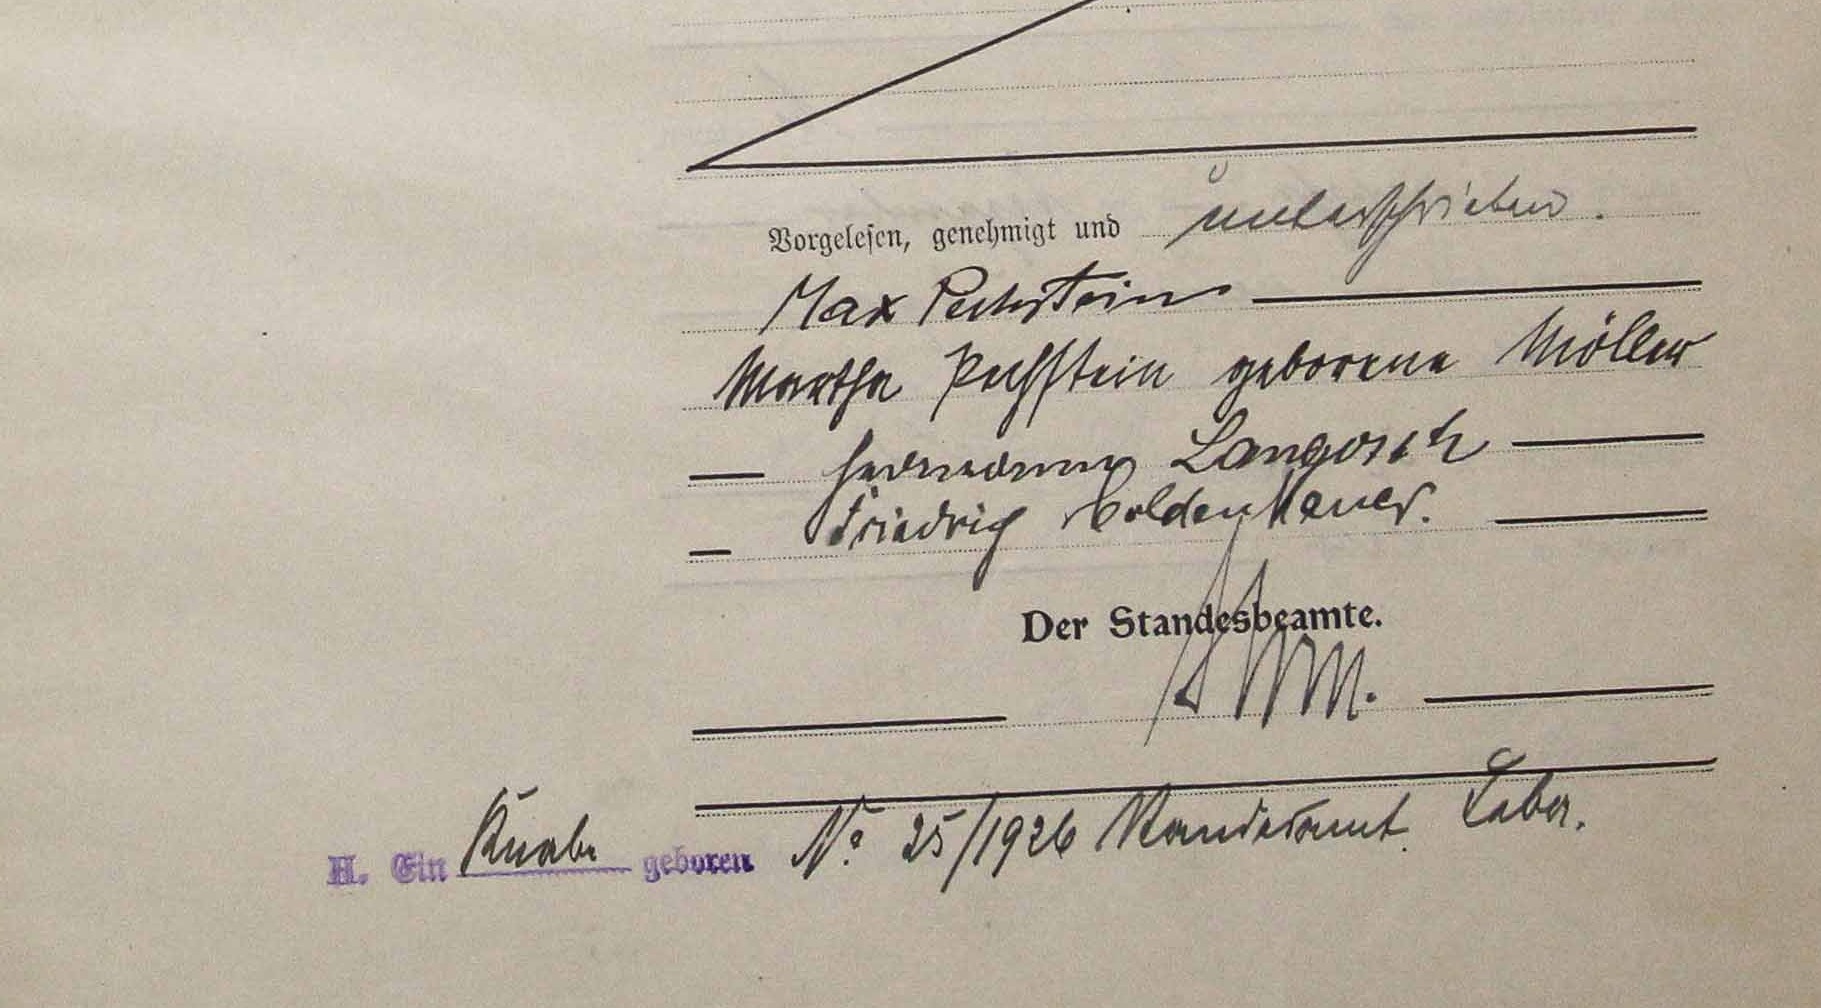 Vorgelesen, genehmigt und unterschrieben.
Max Pechstein
Martha Pechstein geborene Möller
Langosch
Friedrich
Der Standesbeamte.
H. Ein Knabe geboren No 25/1926 Standesamt Leba.